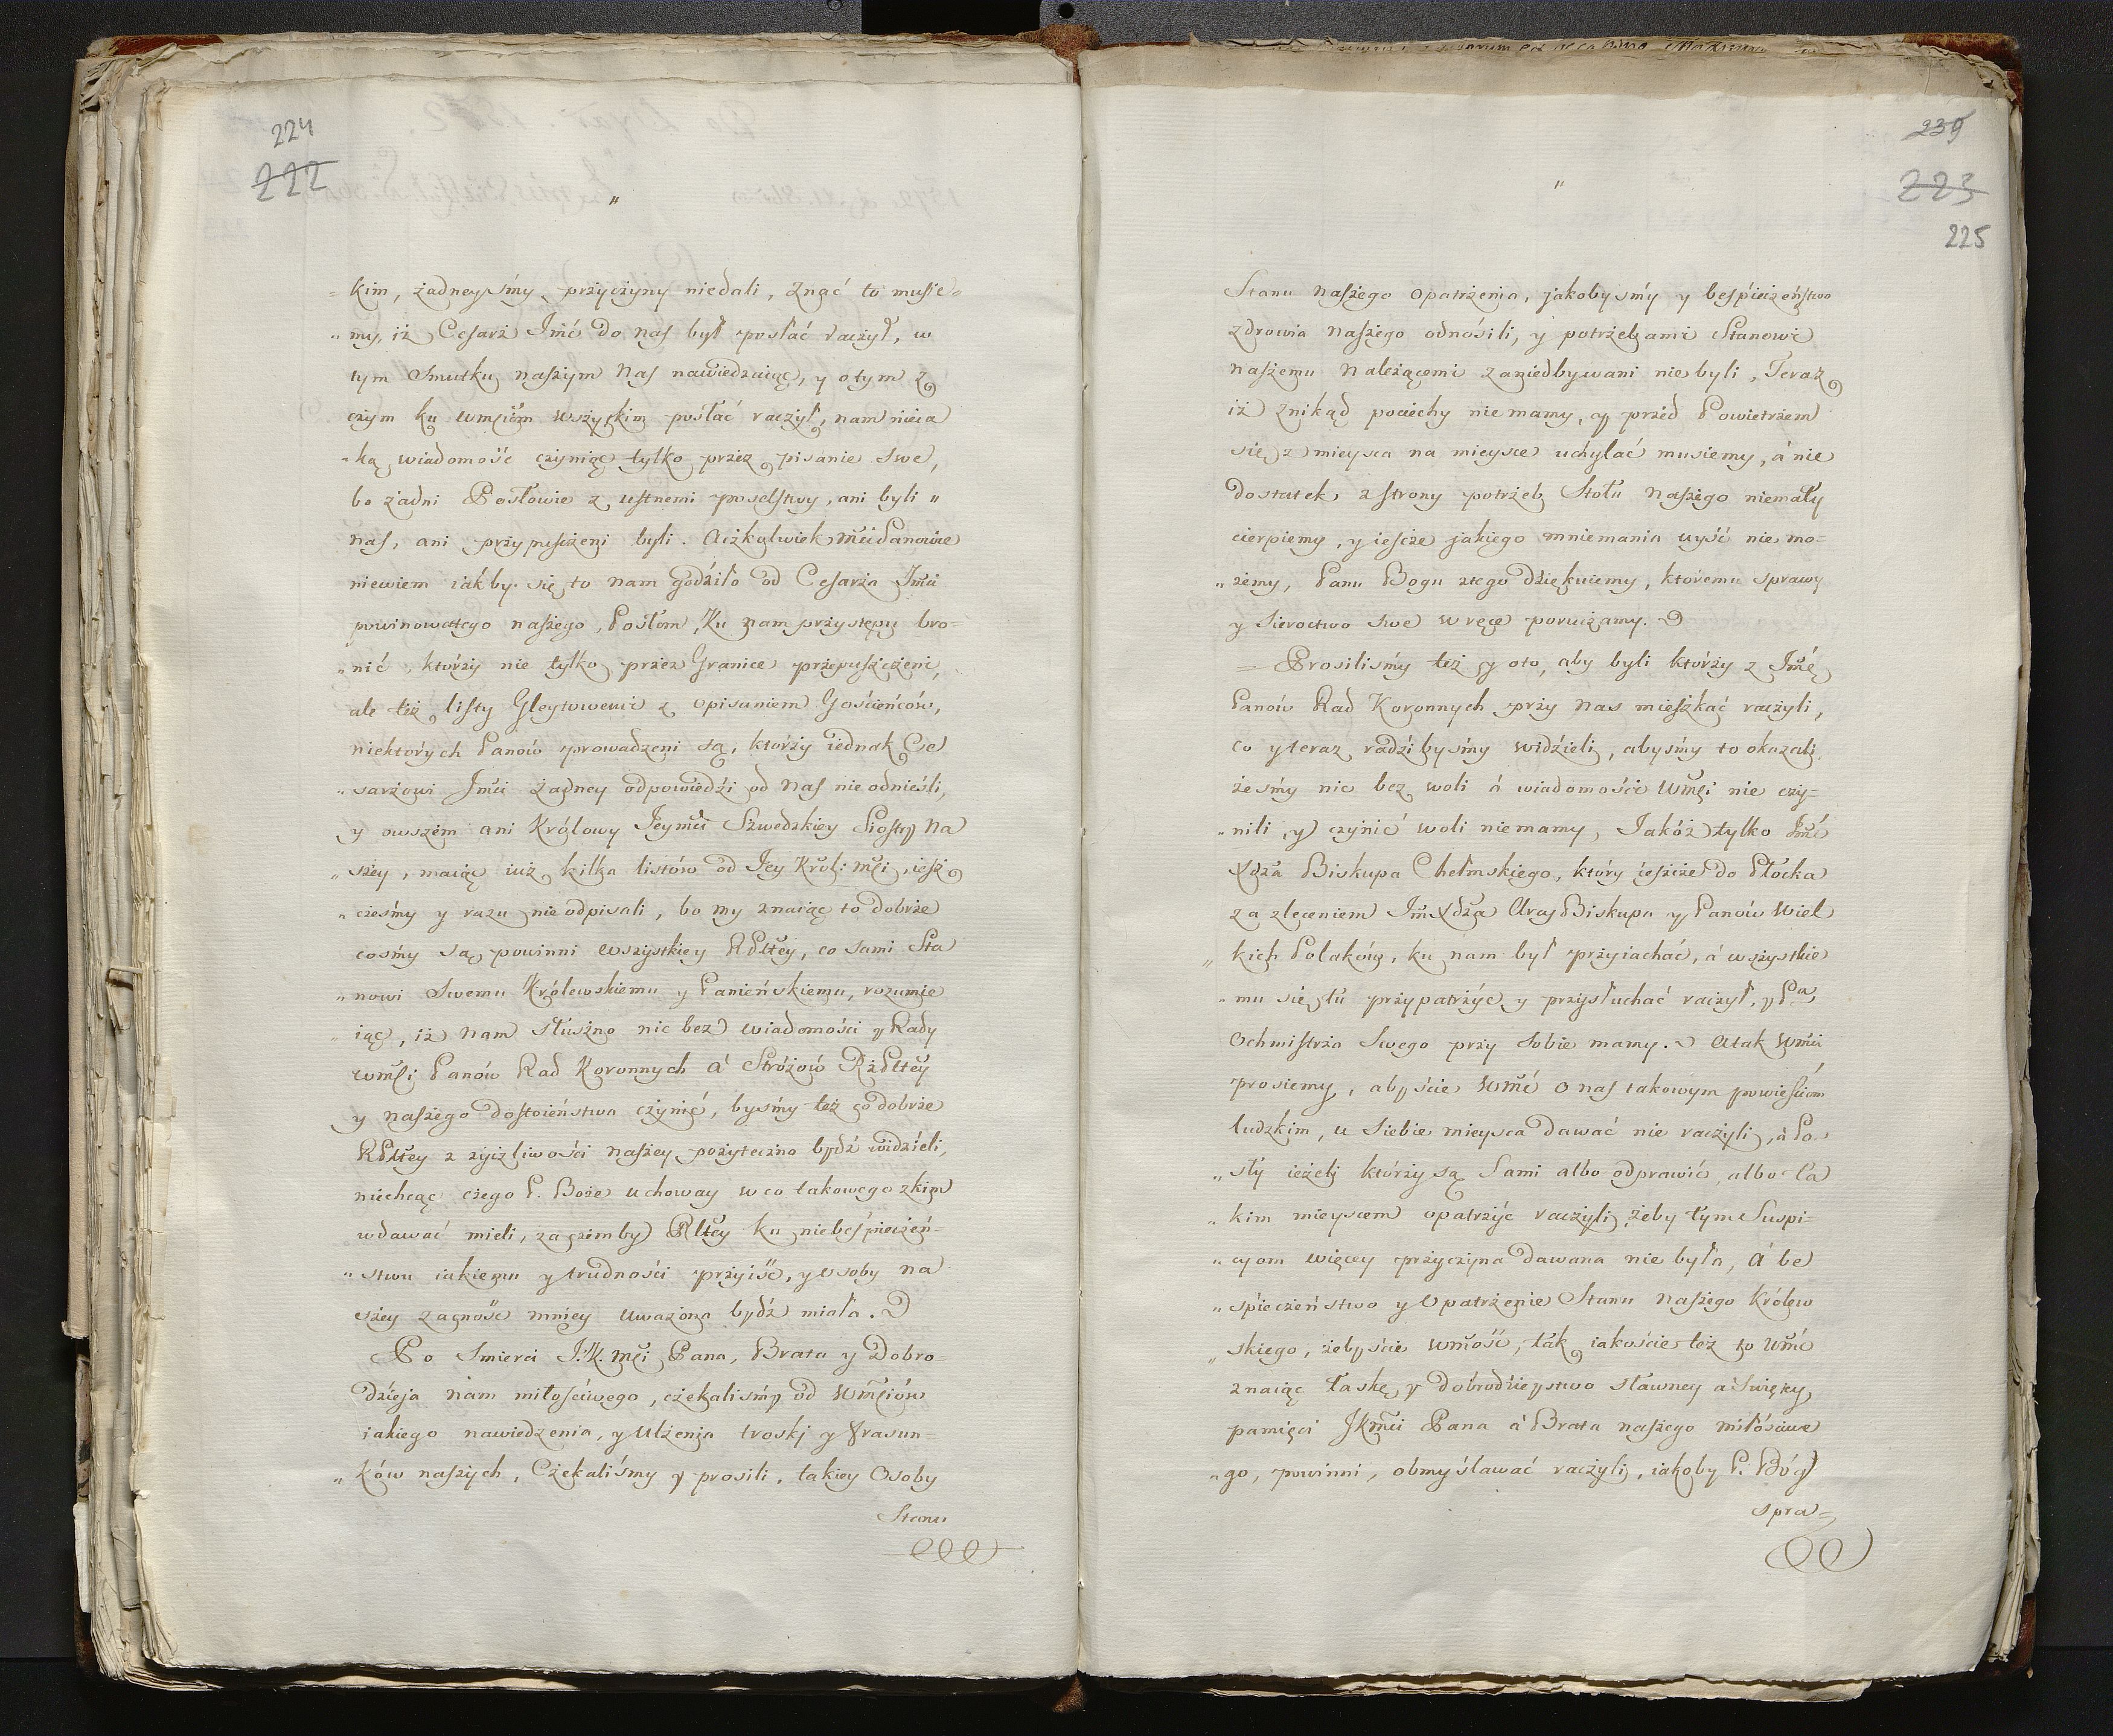 224
222
"
= kim, żadneysmy przyczyny niedali, znać to musie=
" my, iż Cesarz Jmć do nas był posłać raczył, w
tym smutku naszym Nas nawiedzaiąc, y o tym z
czym ku wmciom wszystkim posłać raczył, nam nieia
" ką wiadomość czyniąc tylko przez pisanie swe,
bo żadni Posłowie z ustnemi poselstwy, ani byli "
nas, ani przypuszczeni byli. Aczkolwiek Mci Panowie
niewiem iakby się to nam godziło od Cesarza Jmci
powinowatego naszego, Posłom, Ku nam przystępu bro=
" nić, którzy nie tylko przez Granice przepuszczeni,
ale też listy Gleytowemi z opisaniem Gościeńców,
niektorych Panów prowadzeni są, którzy iednak Ce
" sarzowi Jmci żadney odpowiedzi od Nas nie odnieśli,
y owszem ani Królowy Jeymci Szwedzkiey Siostry Na
" szey, maiąc iuż kilka listów od Jey Król: Mci, iesz
" cześmy y razu nie odpisali, bo my znaiąc to dobrze
cośmy są powinni wszystkiey RPltey, co sami Sta
" nowi Swemu Królewskiemu y Panieńskiemu, rozumie
" iąc, iż Nam słuszno nic bez wiadomości y Rady
wmći Panów Rad Koronnych á Stróżów RżPltey
y naszego dostoieństwa czynić, bysmy też co dobrze
RPltey z życzliwości naszey pożyteczno bydź widzieli,
niechcąc czego P. Boże uchoway w co takowego zkim
wdawać mieli, zaczemby Rltey ku niebespieczeń=
" stwu iakiemu y trudności przyiść, y osoby na
szey zacność mniey uważona bydź miała.
Po Smierci J.K.Mći Pana, Brata y Dobro=
dzieja nam miłościwego, czekalismy od Wmćiów
iakiego nawiedzenia, y ulżenia troski y frasun=
" ków naszych, Czekaliśmy y prosili, takiey Osoby
Stanu
239
223
225
"
Stanu naszego opatrzenia, jakobysmy y bespieczeństwo
zdrowia naszego odnosili, y potrzebami Stanowi
naszemu Należącemi zaniedbywani nie byli, Teraz
iż znikąd pociechy niemamy, y przed Powietrzem
się z mieysca na mieysce uchylać musiemy, á nie
dostatek z strony potrzeb Stołu Naszego niemały
cierpiemy, y ieszcze jakiego mniemania uyść nie mo=
" żemy, Panu Bogu z tego dziękuiemy, któremu sprawy
y Sieroctwo Swe w ręce poruczamy.
= Prosilismy też y oto, aby byli którzy z Jmć
Panów Rad Koronnych przy Nas mieszkać raczyli,
co y teraz radzibysmy widzieli, abysmy to okazali
żesmy nic bez woli á wiadomości Wmći nie czy=
" nili, y czynić woli niemamy, Jakóż tylko Jmć
Xdza Biskupa Chełmskiego, który ieszcze do Płocka
za zleceniem Jm Xdza Arcy Biskupa y Panów Wiel
" kich Polaków, ku nam był przyiachać, á wszystkie
" mu się tu przypatrzyć y przysłuchać raczył, y Pa
Ochmistrza Swego przy sobie mamy. Atak Wmci
prosiemy, abyście Wmć o nas takowym powieściom
ludzkim, u Siebie mieysca dawać nie raczyli, á Po
" sły ieżeli którzy są Sami albo odprawić, albo ta
" kim mieyscem opatrzyć raczyli, żeby tym Suspi=
" cyom więcey przyczyna dawana nie była, á be
" spieczeństwo y Opatrzenie Stanu Naszego Królew
" skiego, żebyście wmość, tak iakoście też to Wmć
znaiąc łaskę y dobrodzieystwo sławney á Swięty,
pamięci JKmći Pana á Brata naszego miłościwe
" go, powinni, obmyślawać raczyli, iakoby P. Bóg
spra=